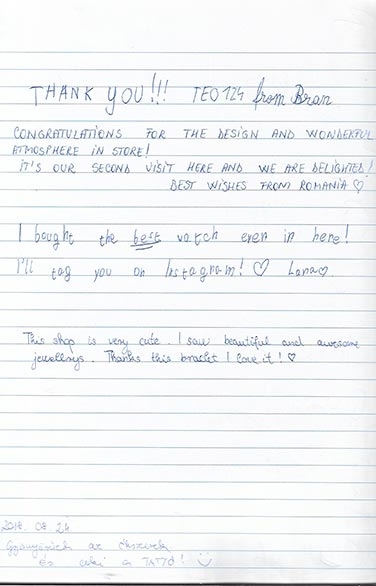 THANK YOU!!! TEO 124 from Bran
CONGRATULATIONS FOR THE DESIGN AND WONDERFUL
ATMOSPHERE IN STORE!
IT'S OUR SECOND VISIT HERE AND WE ARE DELIGHTED!
BEST WISHES FROM ROMANIA ♡
I bought the best watch ever in here!
I'll tag you on Instagram! ♡ Lana♡
This shop is very cute. I saw beautiful and awesome
jewellrys. Thanks this braclet I love it! ♡
07. 24
az ékszerek
és a